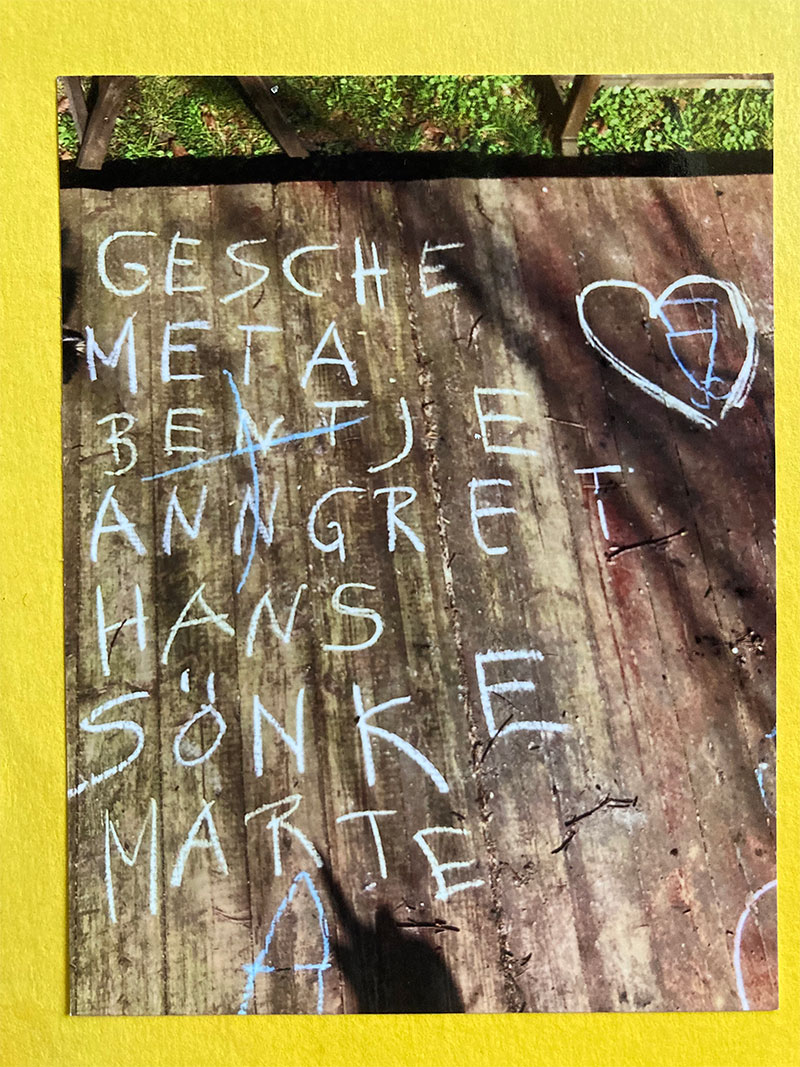 GESCHE
META
BENTJE
ANNGRET
HANS
SÖNKE
MARTE
A